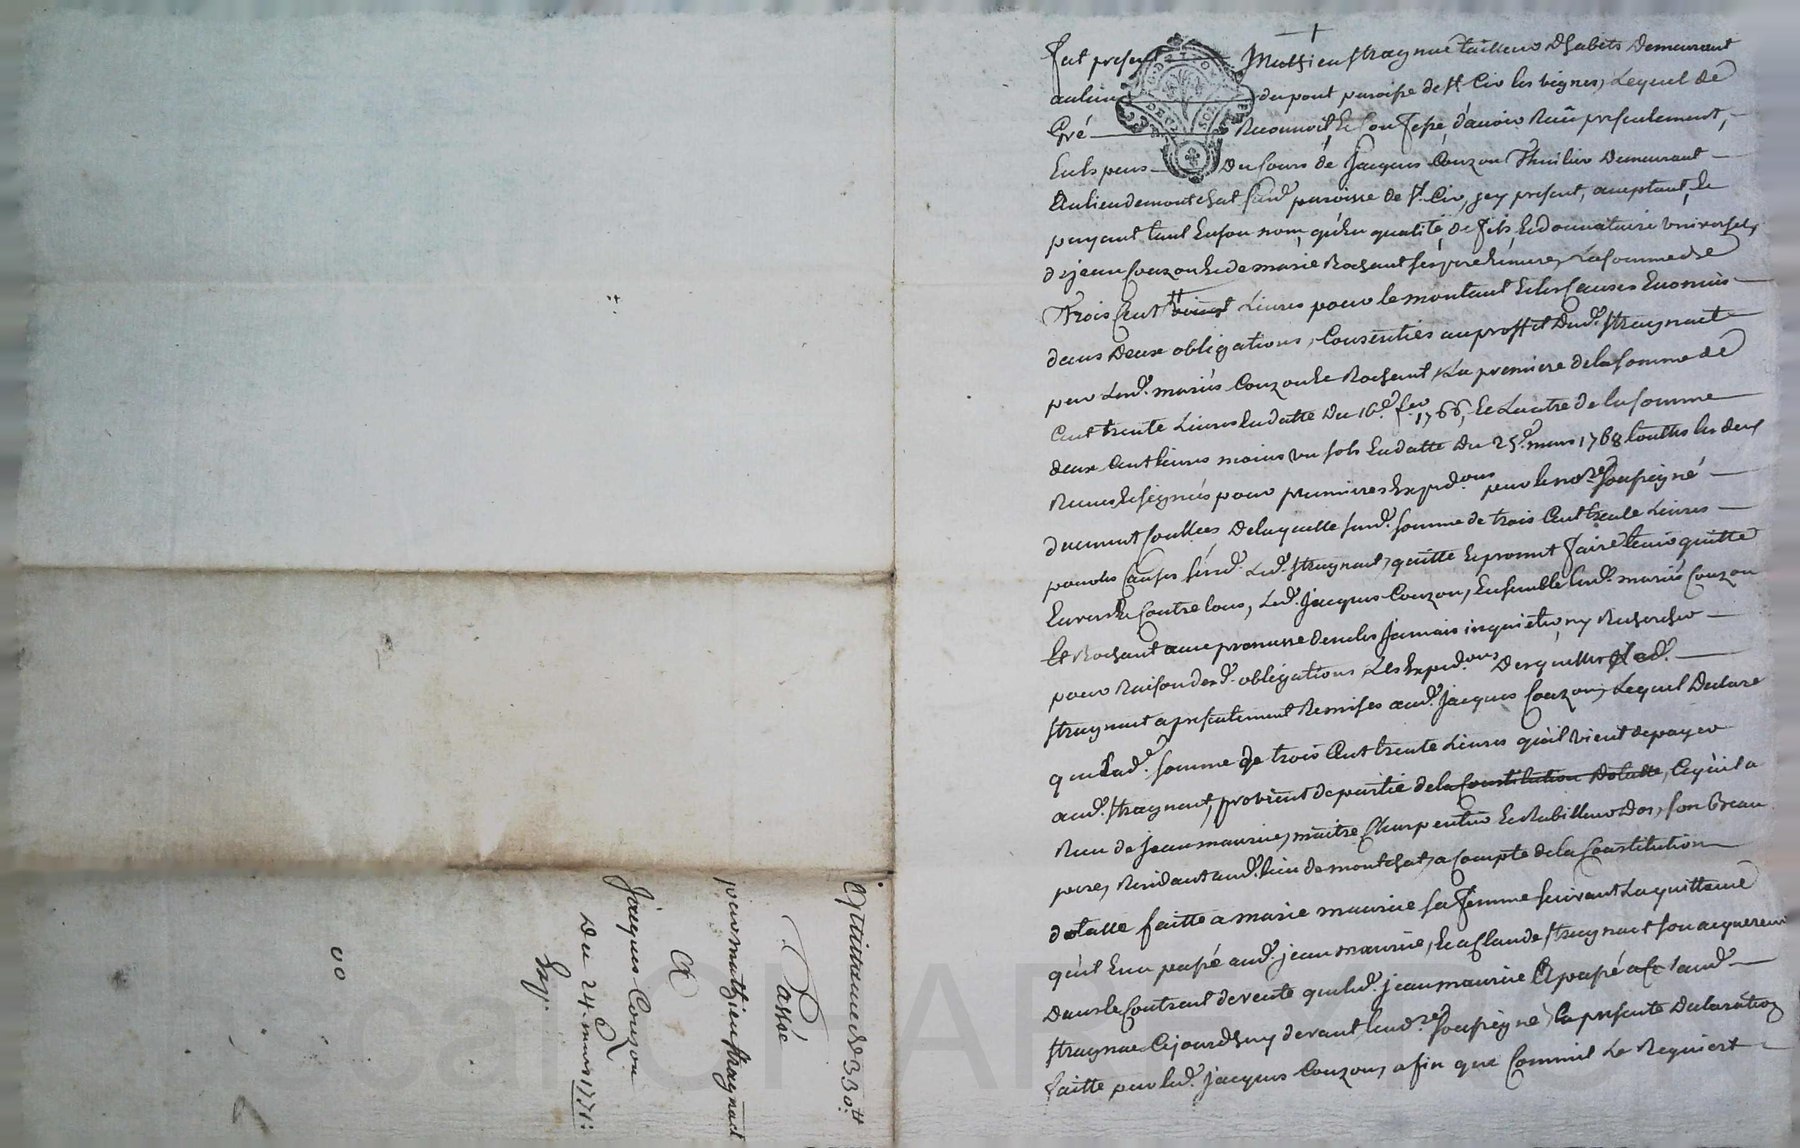 Fut present Mathieu Stragnat tailleur d'habits demeurant
au lieu du pont paroisse de St. Cir les vignes, Lequel de
Gré Reconnoit, et Confesse, d'avoir Reçu presentement,
du Cours de Jacques Couzon Thuilier demeurant
au lieu de montchat paroisse de St. Cir, icy present, acceptant, et
payant tant en son nom, qu'en qualité, de fils, et donnataire universel,
de jean Couzon et de marie Rochant ses pere et mere, La somme de
Trois Cent livres pour le montant et les Causes Enoncés
dans deux obligations, Consenties au proffit dud. Stragnat
par Lesd. mariés Couzon et Rochant, La premiere de la somme de
Cent trente Livres en datte du 16e. fev. 1766, et L'autre de la somme
deux Cent livres moins un sols en datte du 25e. mars 1768 touttes les deux
Reçues et signées pour premieres Exped.ons par le no.re soussigné
duement Controllées de laquelle susd. somme de trois Cent trente Livres
pour les Causes susd. Led. Stragnat, quitte et promet faire tenir quitte
Envers et Contre tous, Led. Jacques Couzon, Ensemble lesd. mariés Couzon
et Rochant avec promesse de ne les Jamais inquieter, ny Rechercher
pour Raison desd. obligations, Les Exped.ons desquelles led.
Stragnat a presentement Remises aud. Jacques Couzon, Lequel declare
que Lad. somme de trois Cent trente Livres qu'il vient de payer
aud. Stragnat, provient de partie de la Constitution dotalle, Ce qu'il a
Reçu de jean maurice, maitre Charpentier et habilleur d'os, son beau
pere, Residant aud. lieu de montchat, a Compte de la Constitution
dotalle faitte a marie maurice sa femme suivant La quittance
qu'il En a passé aud. jean maurice, et a Claude Stragnat son acquereur
dans le Contract de vente que led. jean maurice a passé aud.
Stragnat Cejourd'huy devant led. no.re soussigné, la presente declaration
faitte par led. Jacques Couzon, afin que Comme il Le Requiert
Quittance de 330.tt
Passée
par mathieu Stragnat
A
Jacques Couzon
Du 24. mars 1771.
00